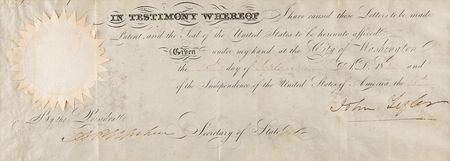 IN TESTIMONY WHEREOF I have caused these Letters to be made
Patent, and the Seal of the United States to be hereunto affixed.
Given under my hand at the City of Washington
the day of A.D. 18
and
of the Independence of the United States of America, the
John Tyler
By the President
Secretary of State